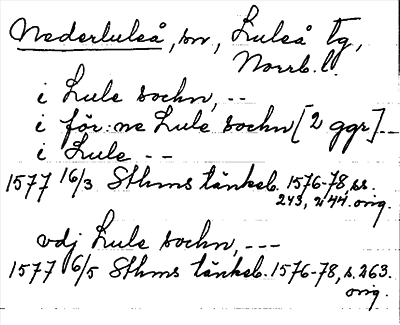 Nederluleå, sn, Luleå tg,
Norrb. l.
i Lule sochn, --
i för:ne Lule sochn [2 ggr] --
i Lule --
1577 16/3 Sthms tänkeb. 1576-78, ss.
243, 244. orig.
vdj Lule sochn, ---
1577 6/5 Sthms tänkeb. 1576-78, s. 263.
orig.